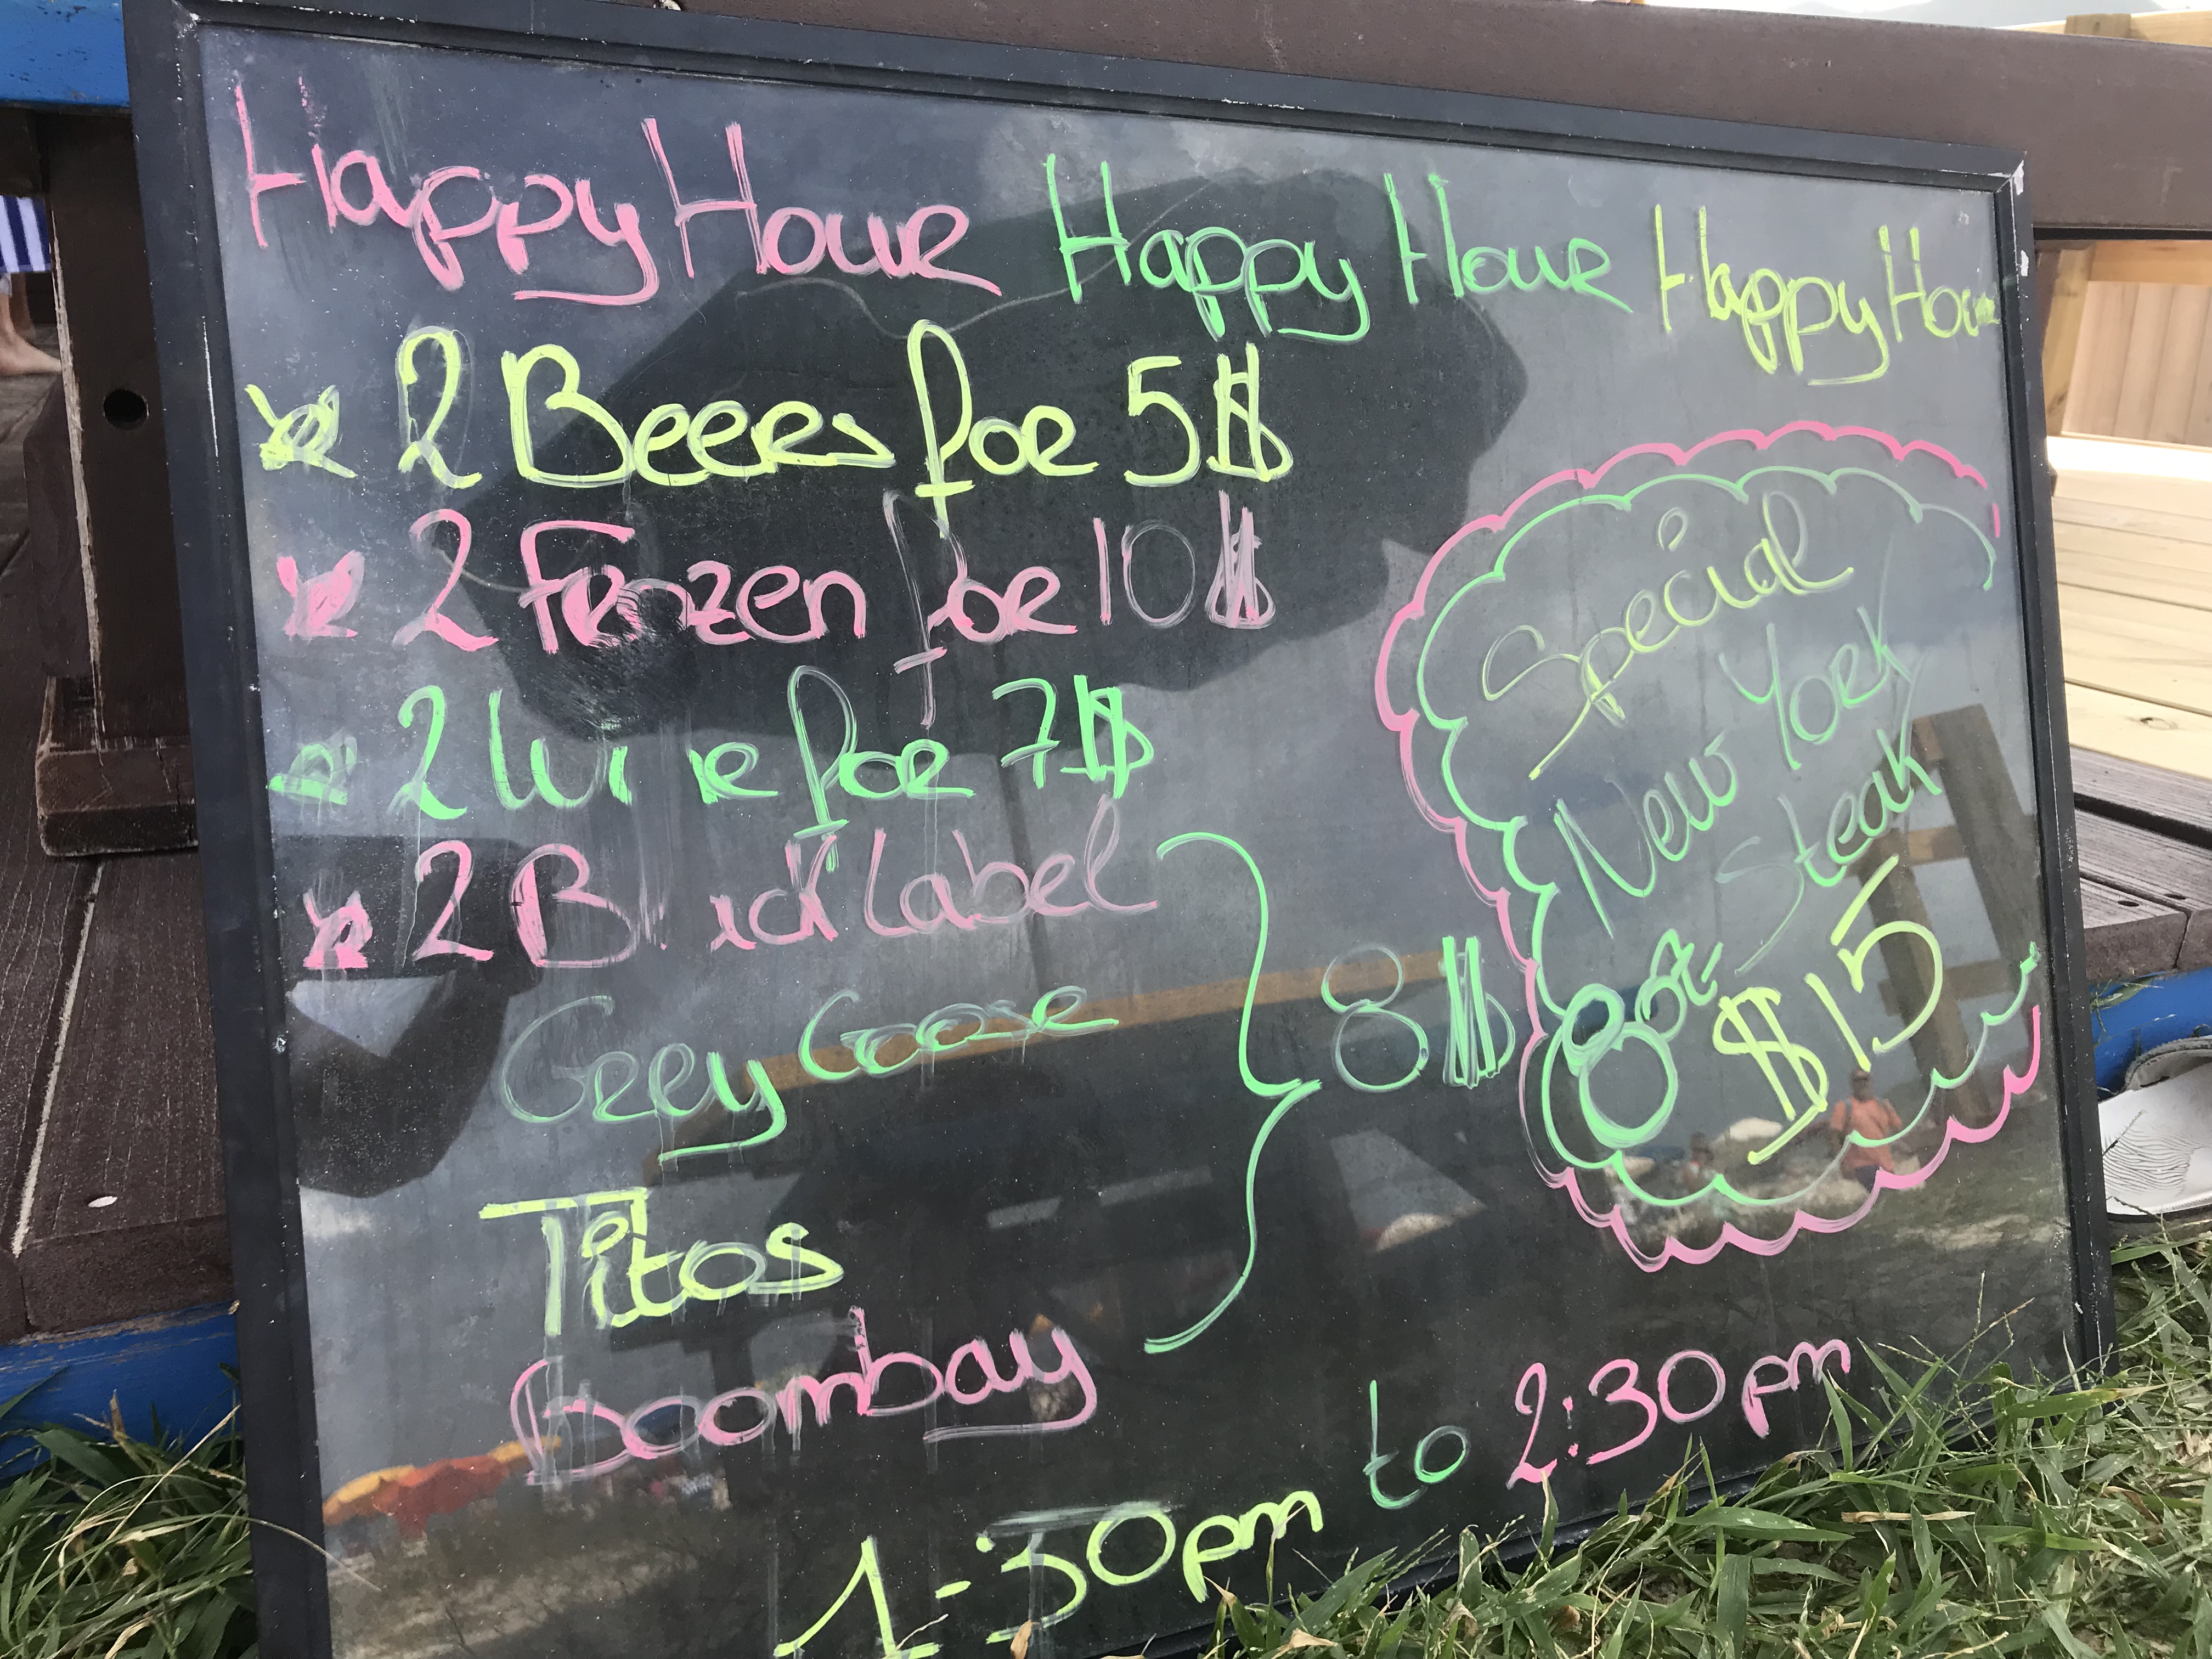 Happy Hour Happy Hour Happy Hour
2 Beers for 5$
2 Frozen for 10$
2 Wine for 7$
2 Black Label
Grey Goose
Titos
Boombay
8$
Special
New York
Steak
8oz
$15
1:30pm to 2:30pm